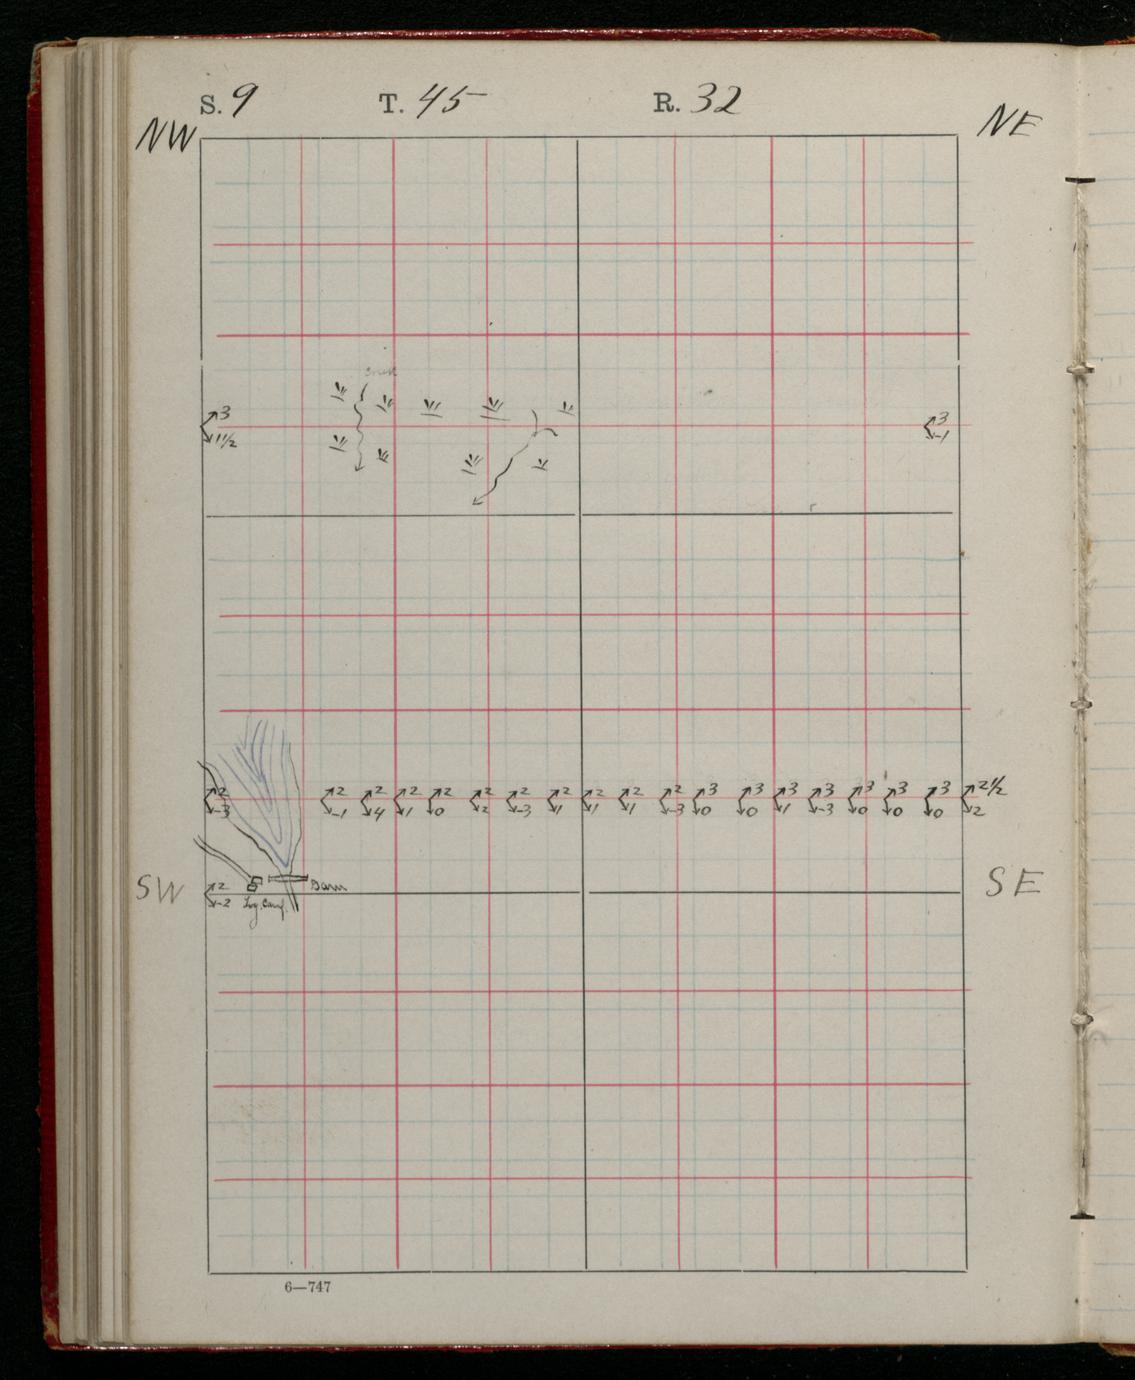 S. 9 T. 45 R. 32
NW NE
3 3
1 1/2 -1
2 2 2 2 2 2 2 2 2 2 2 3 3 3 3 3 3 3 2 1/2
-3 -1 4 1 0 2 -3 1 1 1 -3 0 0 1 -3 0 0 0 2
SW Dam SE
2
-2 Log. Camp.
6—747